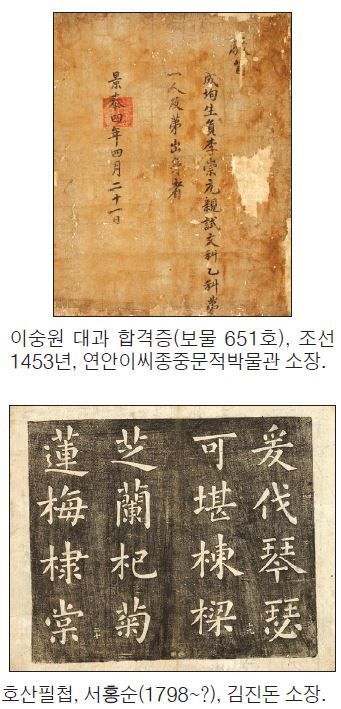 成均生員李崇元親試文科乙科第
一人及第出身者
景泰四年四月二十一日
이숭원 대과 합격증(보물 651호), 조선
1453년, 연안이씨종중문적박물관 소장.
爰伐琴瑟
可堪棟樑
芝蘭杞菊
蓮梅棣棠
호산필첩, 서홍순(1798~?), 김진돈 소장.